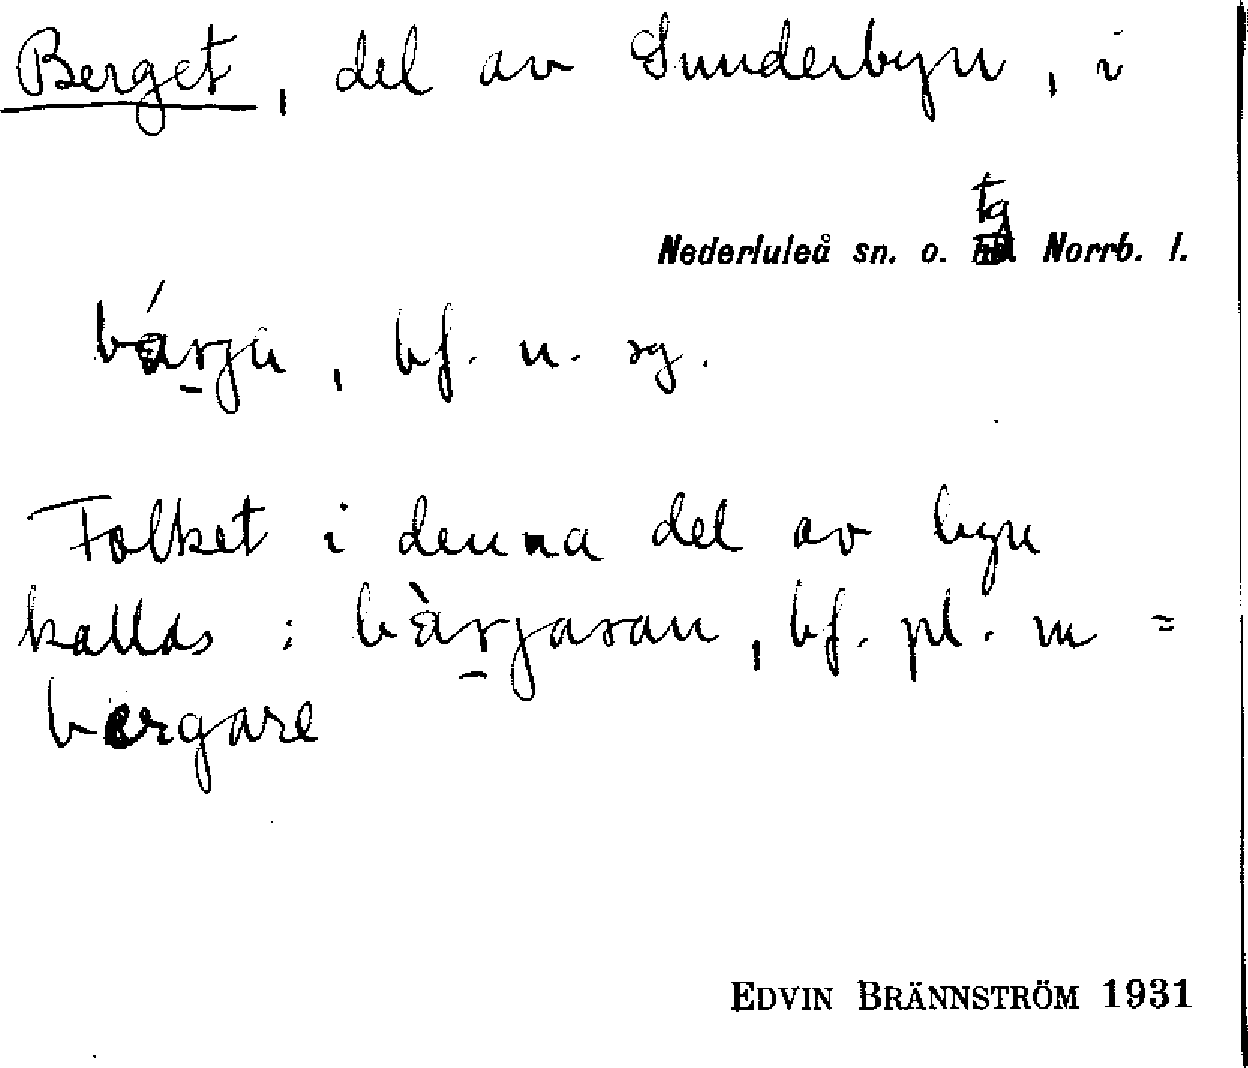 Berget, del av Sunderbyn, i
Nederluleå sn. o. tg Norrb. l.
bárju, bf. n. sg.
Folket i denna del av byn
kallas : bàrjaran, bf. pl. m =
bergare
EDVIN BRÄNNSTRÖM 1931